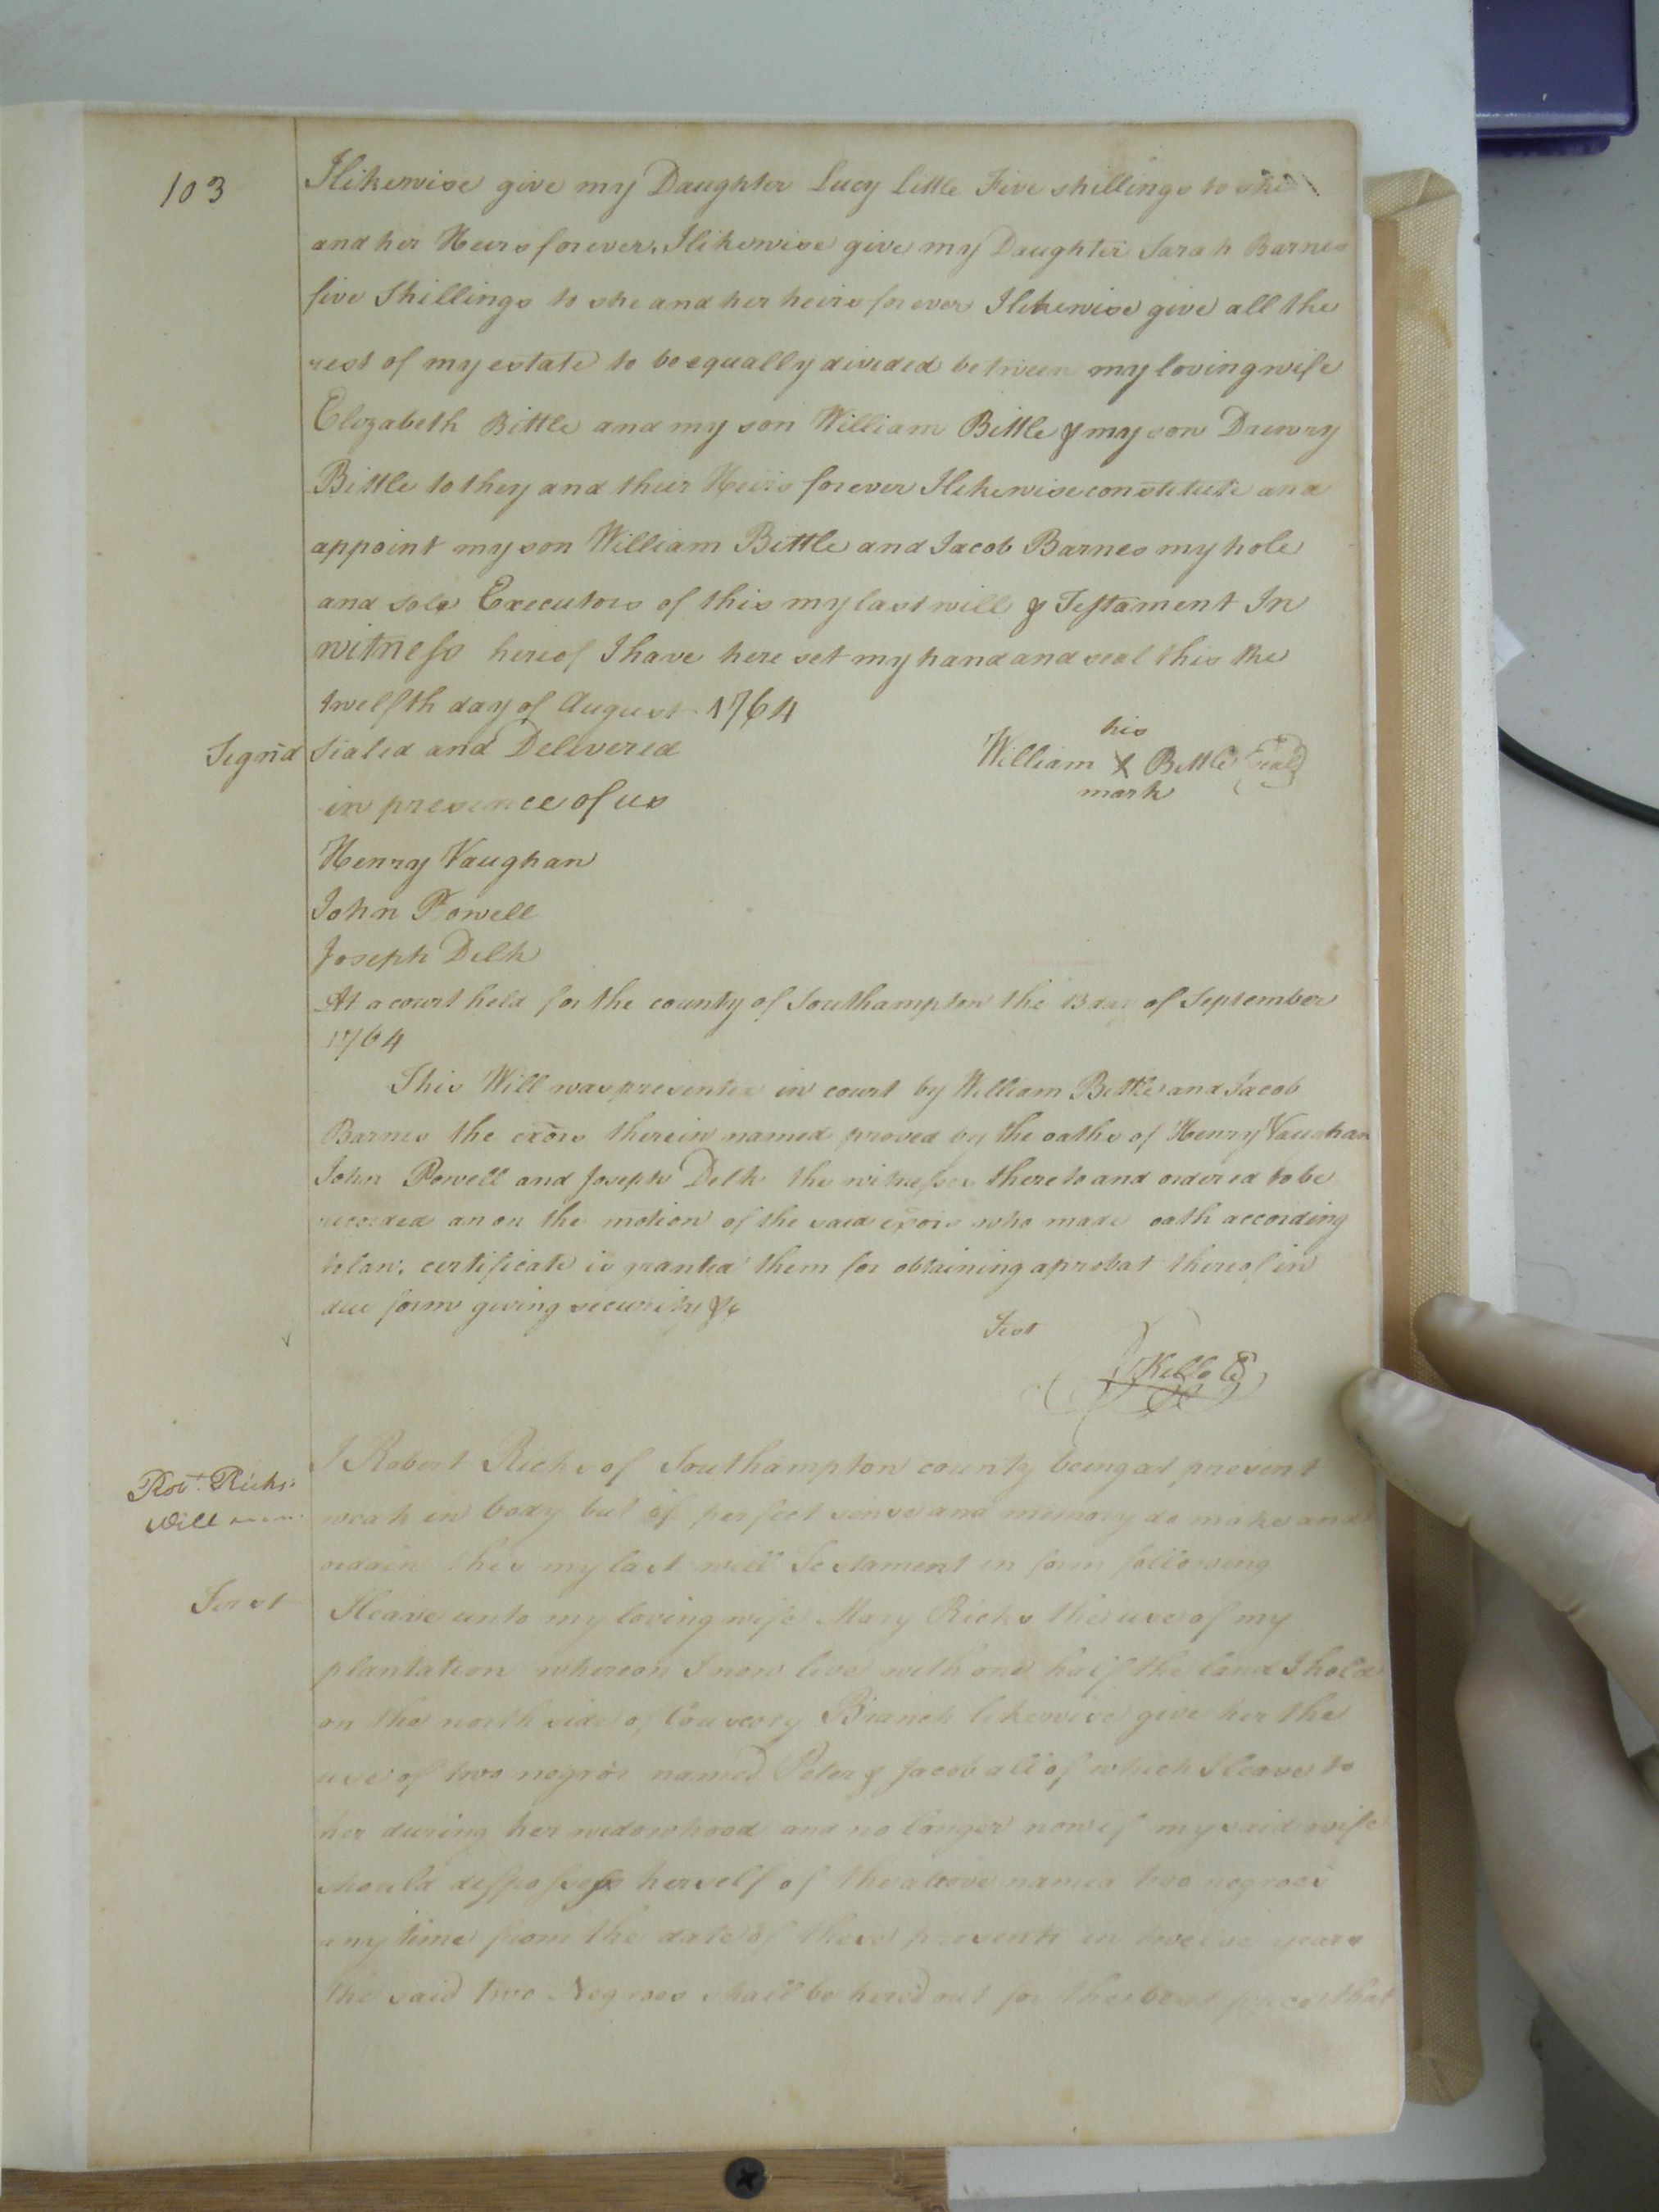 103
I likewise give my Daughter Lucy Little Five shillings to she
and her Heirs forever, I likewise give my Daughter Sarah Barnes
five Shillings to she and her heirs forever I likewise give all the
rest of my estate to be equally divided between my loving wife
Elizabeth Bittle and my son William Bittle & my son Drewry
Bittle to they and their Heirs forever I likewise constitute and
appoint my son William Bittle and Jacob Barnes my hole
and sole Executors of this my last will & Testament In
witness hereof I have here set my hand and seal this the
twelfth day of August 1764
his
Signd Sealed and Delivered William X Bittle Seal
mark
in presence of us
Henry Vaughan
John Powell
Joseph Delk
At a court held for the county of Southampton the 13 day of September
1764
This Will was presented in court by William Bittle and Jacob
Barnes the exors therein named proved by the oaths of Henry Vaughan
John Powell and Joseph Delk the witnesses thereto and ordered to be
recorded an on the motion of the said exors who made oath according
to law, certificate is granted them for obtaining a probat thereof in
due form giving security &c
Test
Kello
Robt. Ricks
Will
I Robert Ricks of Southampton county being at present
weak in body but of perfect sense and memory do make and
ordain this my last will Testament in form following
First I leave unto my loving wife Mary Ricks the use of my
plantation whereon I now live with one half the land I hold
on the north side of Branch likewise give her the
use of two negroe named Peter & Jacob all of which I leave to
her during her widowhood and no longer now if my said wife
should disspossess herself of the above named two negroes
any time from the date of these presents in twelve years
the said two Negroes shall be hired out for the best price that